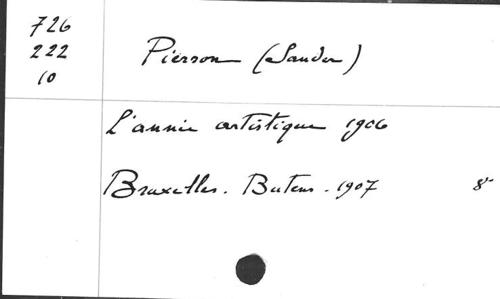 726
222
10
Pierson (Sander)
L'année artistique 1906
Bruxelles. Butens. 1907 8°